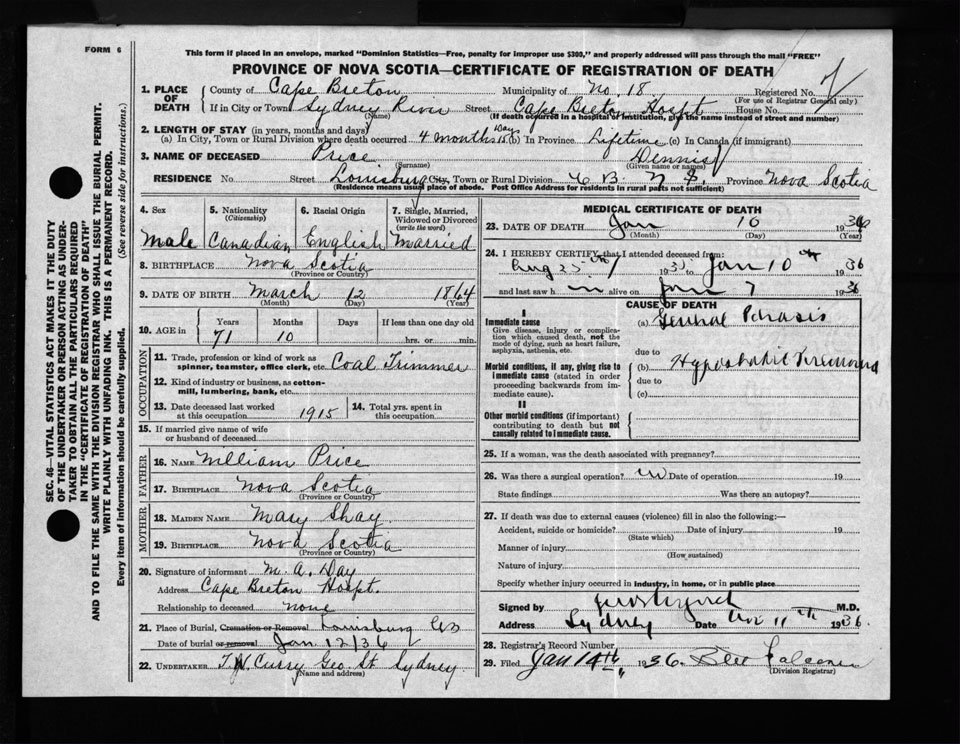 FORM 6
This form if placed in an envelope, marked "Dominion Statistics—Free, penalty for improper use $300," and properly addressed will pass through the mail "FREE"
PROVINCE OF NOVA SCOTIA—CERTIFICATE OF REGISTRATION OF DEATH
1. PLACE OF DEATH County of Cape Breton Municipality of No. 18 Registered No.
(For use of Registrar General only)
If in City or Town Sydney River Street Cape Breton Hospt House No.
(Name) (If death occurred in a hospital or institution, give the name instead of street and number)
2. LENGTH OF STAY (in years, months and days)
(a) In City, Town or Rural Division where death occurred 4 months 15 Days (b) In Province Lifetime (c) In Canada (if immigrant)
3. NAME OF DECEASED Price Dennis
(Surname) (Given name or names)
RESIDENCE No. Street Louisburg City, Town or Rural Division C B. N S. Province Nova Scotia
(Residence means usual place of abode. Post Office Address for residents in rural parts not sufficient)
SEC. 46—VITAL STATISTICS ACT MAKES IT THE DUTY
OF THE UNDERTAKER OR PERSON ACTING AS UNDER-
TAKER TO OBTAIN ALL THE PARTICULARS REQUIRED
IN THE "CERTIFICATE OF REGISTRATION OF DEATH"
AND TO FILE THE SAME WITH THE DIVISION REGISTRAR WHO SHALL ISSUE THE BURIAL PERMIT.
WRITE PLAINLY WITH UNFADING INK. THIS IS A PERMANENT RECORD.
Every item of information should be carefully supplied. (See reverse side for instructions.)
4. Sex 5. Nationality 6. Racial Origin 7. Single, Married,
(Citizenship) Widowed or Divorced
(write the word)
Male Canadian English Married
8. BIRTHPLACE Nova Scotia
(Province or Country)
9. DATE OF BIRTH March 12 1864
(Month) (Day) (Year)
10. AGE in Years Months Days If less than one day old
71 10 hrs. or min.
OCCUPATION
11. Trade, profession or kind of work as
spinner, teamster, office clerk, etc. Coal Trimmer
12. Kind of industry or business, as cotton-
mill, lumbering, bank, etc.
13. Date deceased last worked
at this occupation 1915
14. Total yrs. spent in
this occupation
15. If married give name of wife
or husband of deceased
FATHER
16. NAME William Price
17. BIRTHPLACE Nova Scotia
(Province or Country)
MOTHER
18. MAIDEN NAME Mary Shay
19. BIRTHPLACE Nova Scotia
(Province or Country)
20. Signature of informant M. A. Day
Address Cape Breton Hospt.
Relationship to deceased none
21. Place of Burial, Cremation or Removal Louisburg CB
Date of burial or removal Jan 12/36
22. UNDERTAKER T.W. Curry Geo. St. Sydney
(Name and address)
MEDICAL CERTIFICATE OF DEATH
23. DATE OF DEATH Jan 10 1936
(Month) (Day) (Year)
24. I HEREBY CERTIFY that I attended deceased from:
Aug 25th 1935 Jan 10th 1936
and last saw h im alive on Jan 7 1936
CAUSE OF DEATH
I
Immediate cause (a) General
Give disease, injury or complica-
tion which caused death, not the
mode of dying, such as heart failure,
asphyxia, asthenia, etc.
due to
Morbid conditions, if any, giving rise to (b) Hypostatic
immediate cause (stated in order due to
proceeding backwards from im-
mediate cause). (c)
II
Other morbid conditions (if important)
contributing to death but not
causally related to immediate cause.
25. If a woman, was the death associated with pregnancy?
26. Was there a surgical operation? Date of operation 19
State findings Was there an autopsy?
27. If death was due to external causes (violence) fill in also the following:—
Accident, suicide or homicide? Date of injury 19
(State which)
Manner of injury
(How sustained)
Nature of injury
Specify whether injury occurred in industry, in home, or in public place
Signed by M.D.
Address Sydney Date 11th 1936.
28. Registrar's Record Number
29. Filed Jan 14th 1936. Falconer
(Division Registrar)